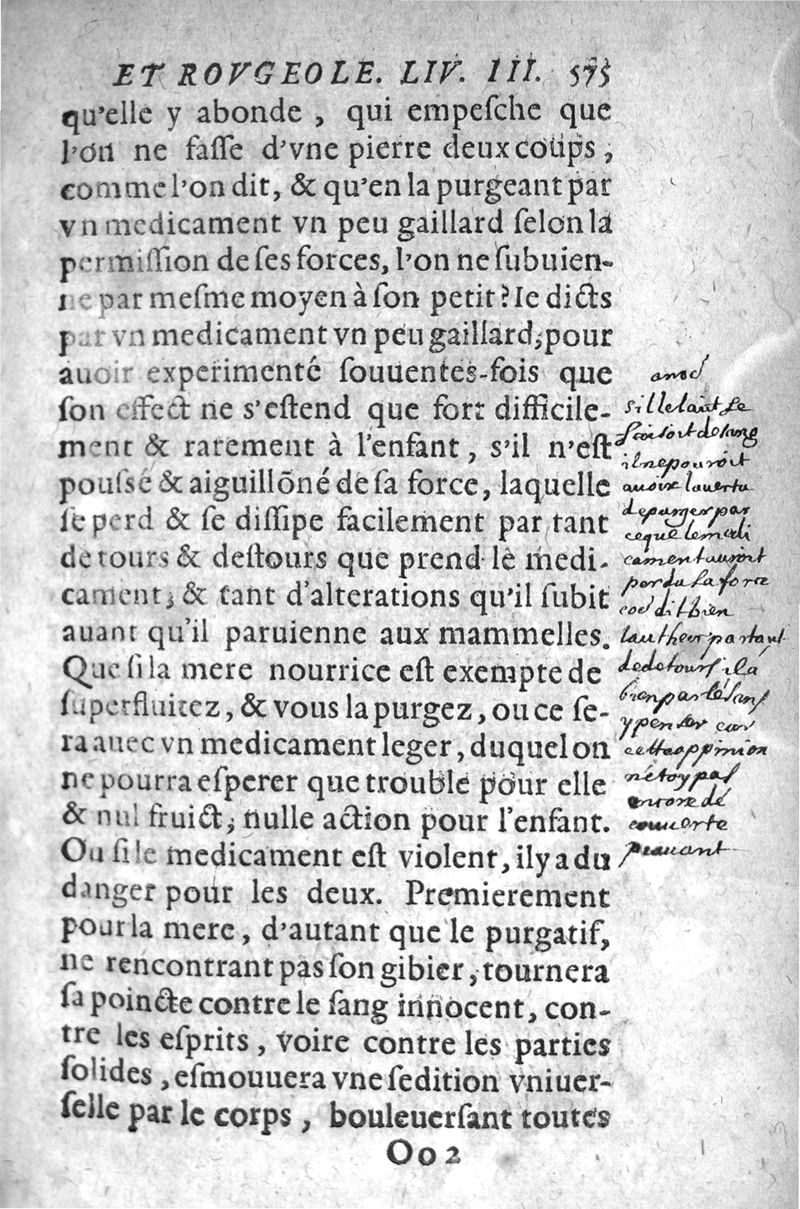 ET ROVGEOLE. LIV. III. 575
qu'elle y abonde, qui empeſche que
l'on ne faſſe d'vne pierre deux coups,
comme l'on dit, & qu'en la purgeant par
vn medicament vn peu gaillard ſelon la
permiſſion de ſes forces, l'on ne ſubuien-
ne par meſme moyen à ſon petit? Ie dicts
par vn medicament vn peu gaillard, pour
auoir experimenté ſouuentes-fois que
ſon effect ne s'eſtend que fort difficile-
ment & rarement à l'enfant, s'il n'eſt
pouſsé & aiguillõné de ſa force, laquelle
ſe perd & ſe diſſipe facilement par tant
de tours & deſtours que prend le medi-
cament, & tant d'alterations qu'il ſubit
auant qu'il paruienne aux mammelles.
Que ſi la mere nourrice eſt exempte de
ſuperfluitez, & vous la purgez, ou ce ſe-
ra auec vn medicament leger, duquel on
ne pourra eſperer que trouble pour elle
& nul fruict, nulle action pour l'enfant.
Ou ſi le medicament eſt violent, il y a du
danger pour les deux. Premierement
pour la mere, d'autant que le purgatif,
ne rencontrant pas ſon gibier, tournera
ſa poincte contre le ſang innocent, con-
tre les eſprits, voire contre les parties
ſolides, eſmouuera vne ſedition vniuer-
ſelle par le corps, bouleuerſant toutes
Oo 2
si le laict se
faisoit de sang
il ne pouroit
auoir la vertu
de purger par
ce que le medi
cament auroit
perdu la force
dit bien
lautheur par tant
de detours il a
bien parlé sans
y penser car
cette oppinion
netoy pas
encore dé
couuerte